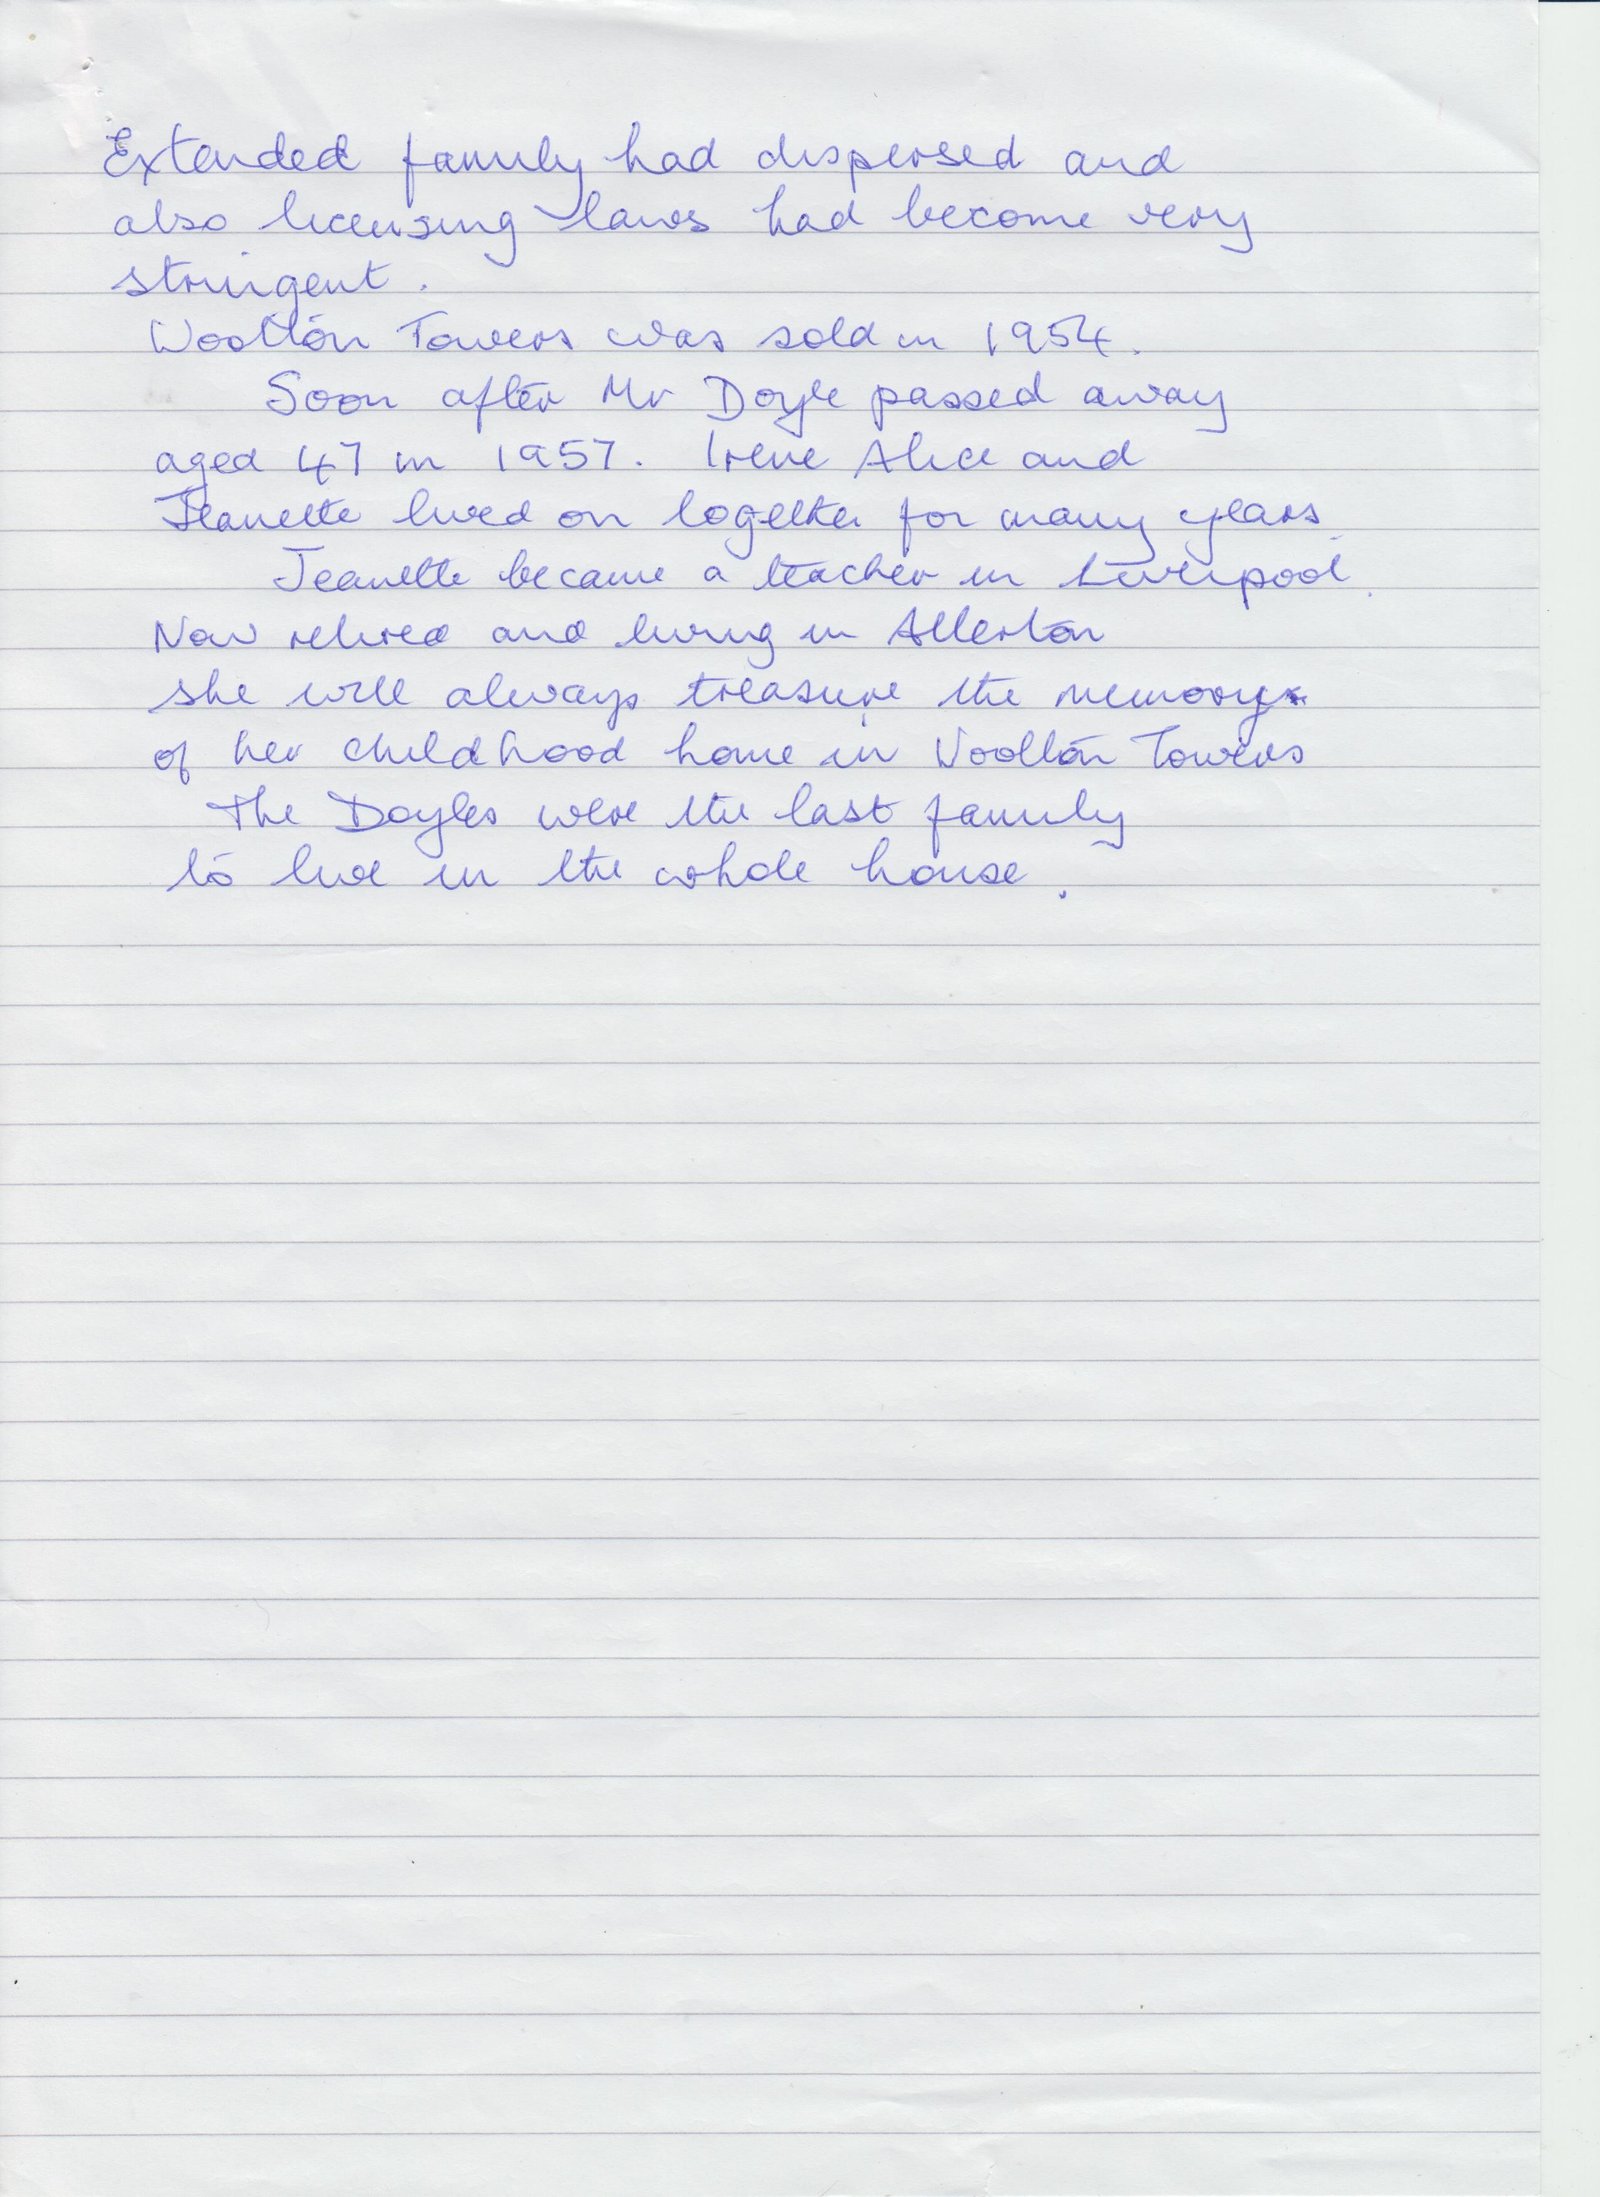 Extended family had dispersed and
also licensing laws had become very
stringent.
Woolton Towers was sold in 1954.
Soon after Mr Doyle passed away
aged 47 in 1957. Irene Alice and
Jeanette lived on together for many years.
Jeanette became a teacher in Liverpool.
Now retired and living in Allerton
she will always treasure the memory
of her childhood home in Woolton Towers
The Doyles were the last family
to live in the whole house.